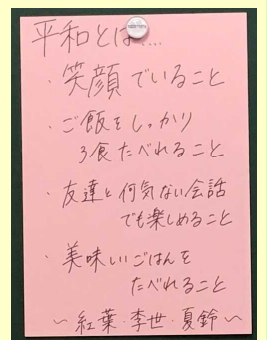 平和とは....
・笑顔でいること
・ご飯をしっかり
3食たべれること
・友達と何気ない会話
でも楽しめること
・美味しいごはんを
たべれること
〜紅葉・李世・夏鈴〜